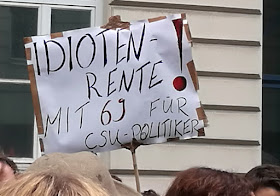 IDIOTEN-
RENTE!
MIT 69 FÜR
CSU-POLITIKER